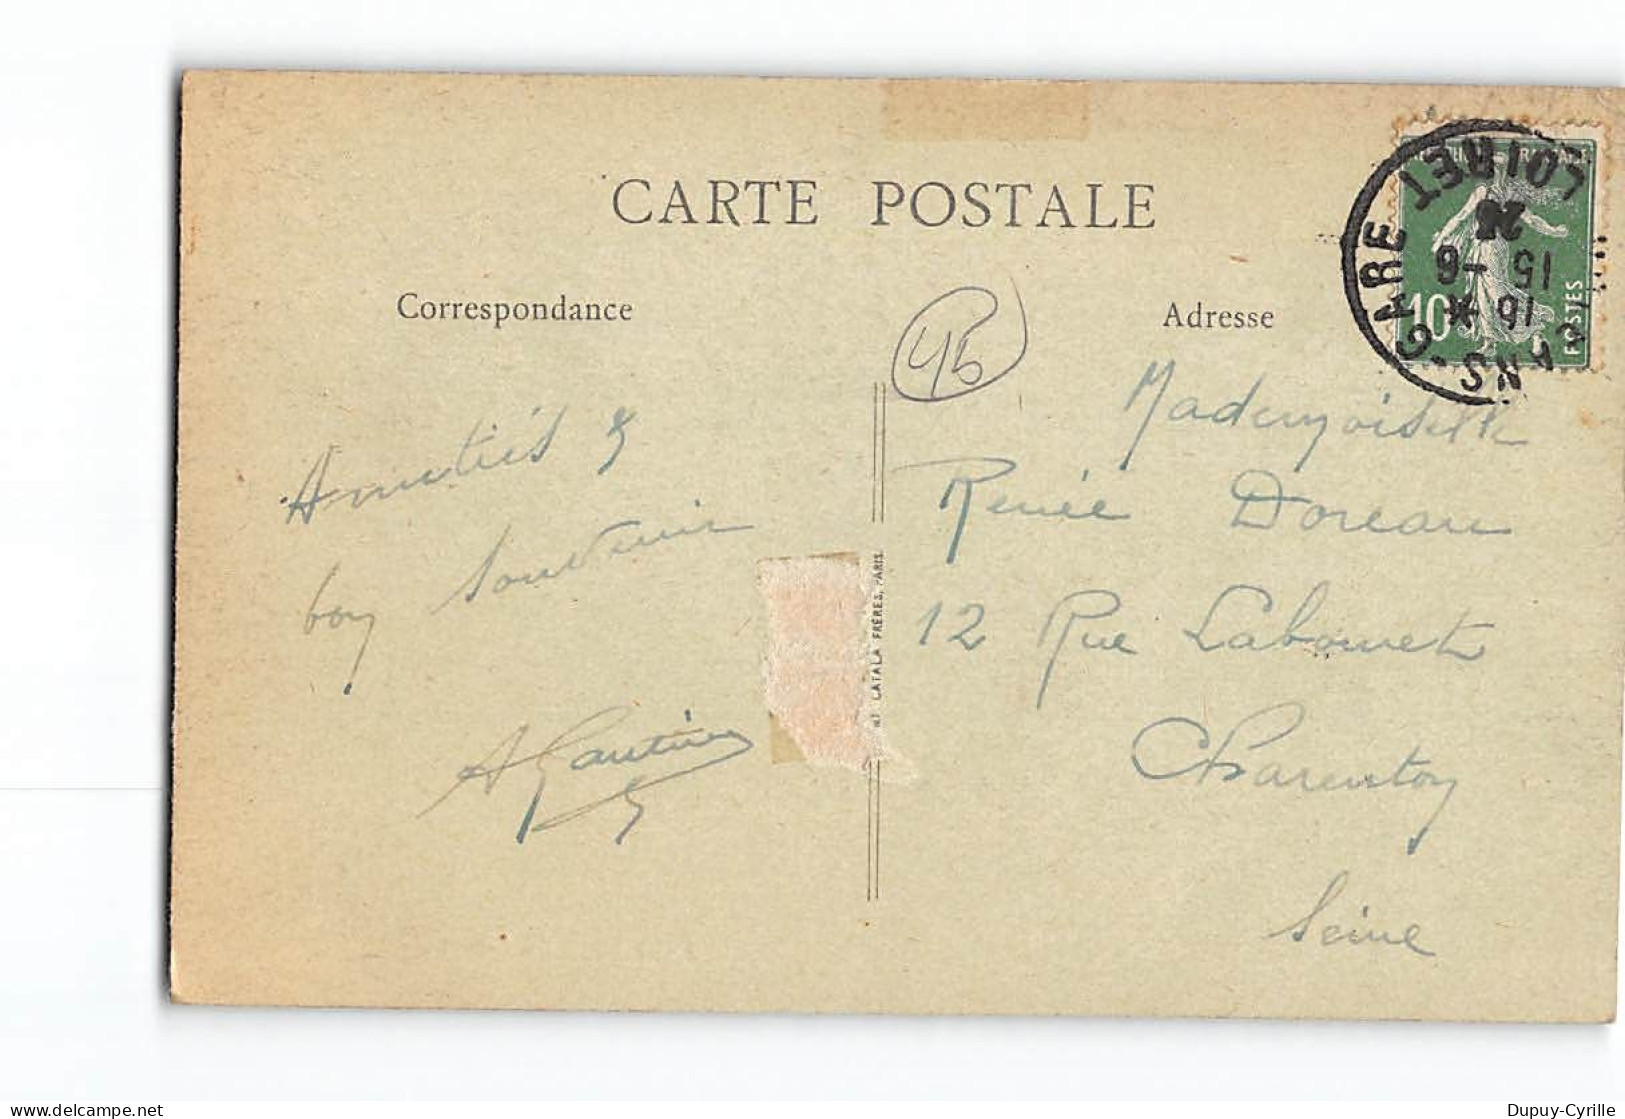 CARTE POSTALE
Correspondance
Adresse
45
Amitiés &
bon Souvenir
A Gautier
Mademoiselle
Renée Doreau
12 Rue Labouret
Charenton
Seine
CATALA FRÈRES, PARIS
GARE LOIRET
16 *
15 - 6
10
POSTES
Dupuy-Cyrille